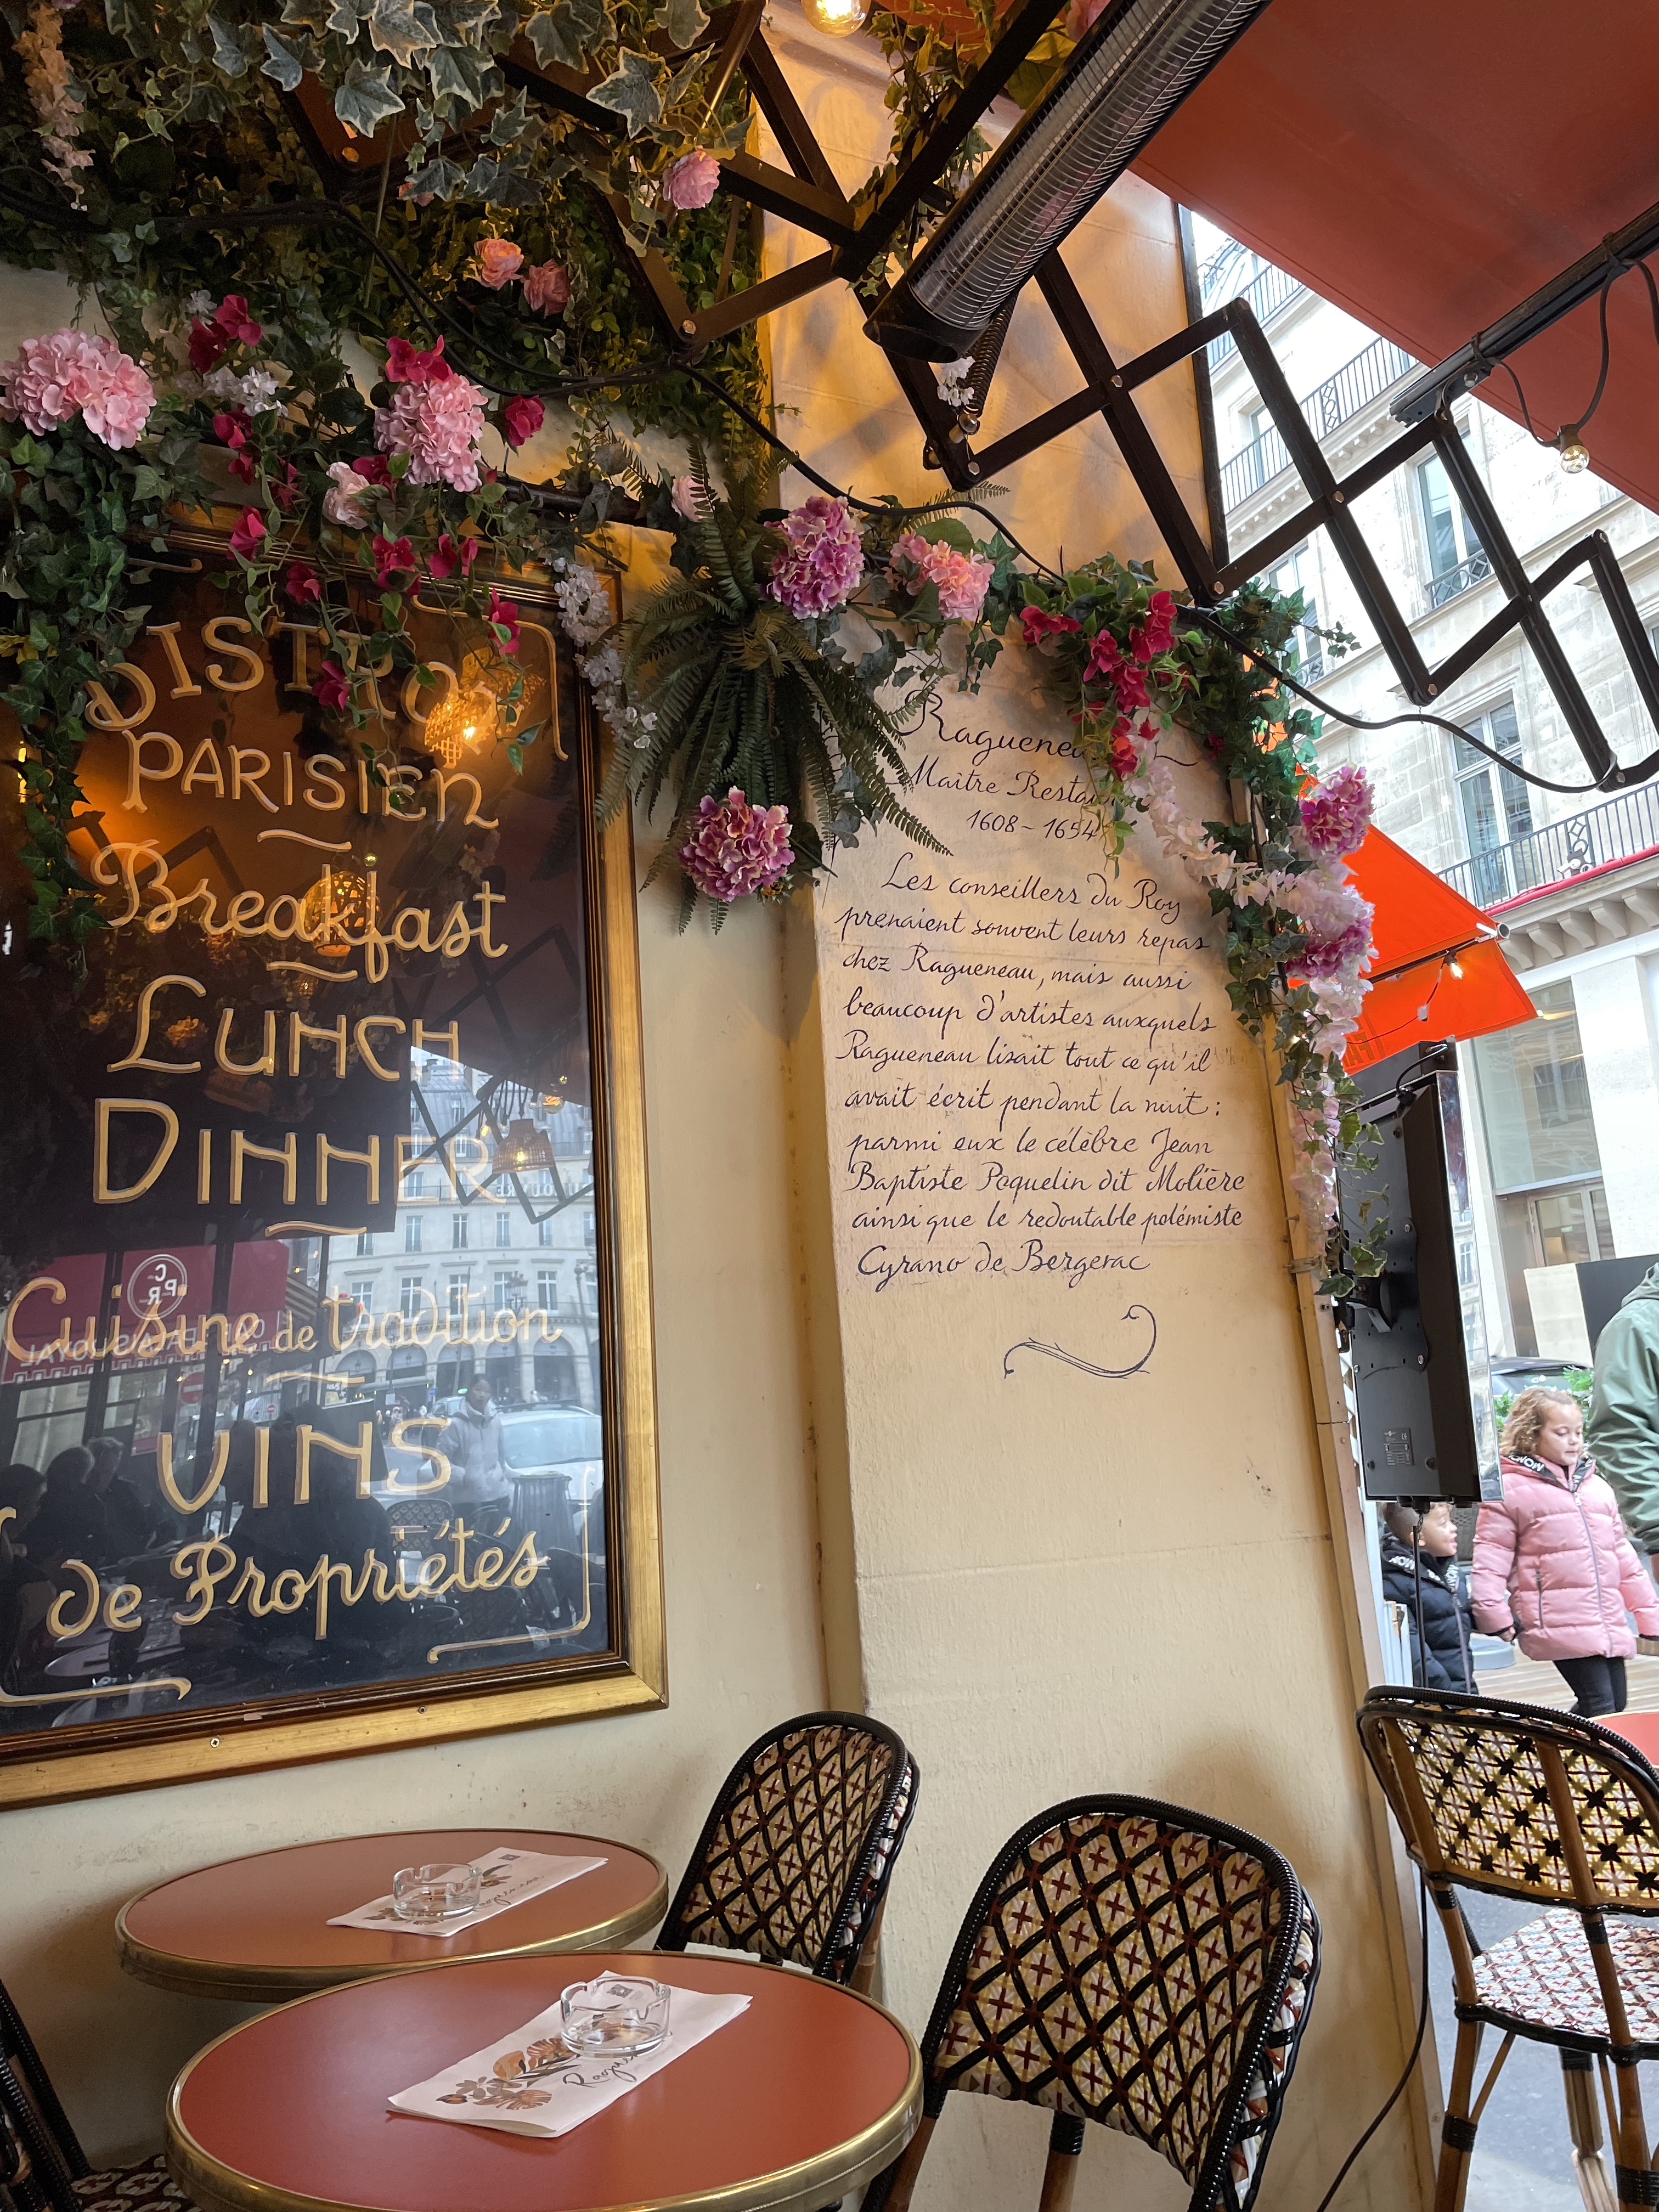 BISTRO
PARISIEN
Breakfast
LUNCH
DINNER
Cuisine de tradition
VINS
de Propriétés
Maître
1608 - 1654
Les conseillers du Roy
prenaient souvent leurs repas
chez Ragueneau, mais aussi
beaucoup d'artistes auxquels
Ragueneau lisait tout ce qu'il
avait écrit pendant la nuit :
parmi eux le célèbre Jean
Baptiste Poquelin dit Molière
ainsi que le redoutable polémiste
Cyrano de Bergerac